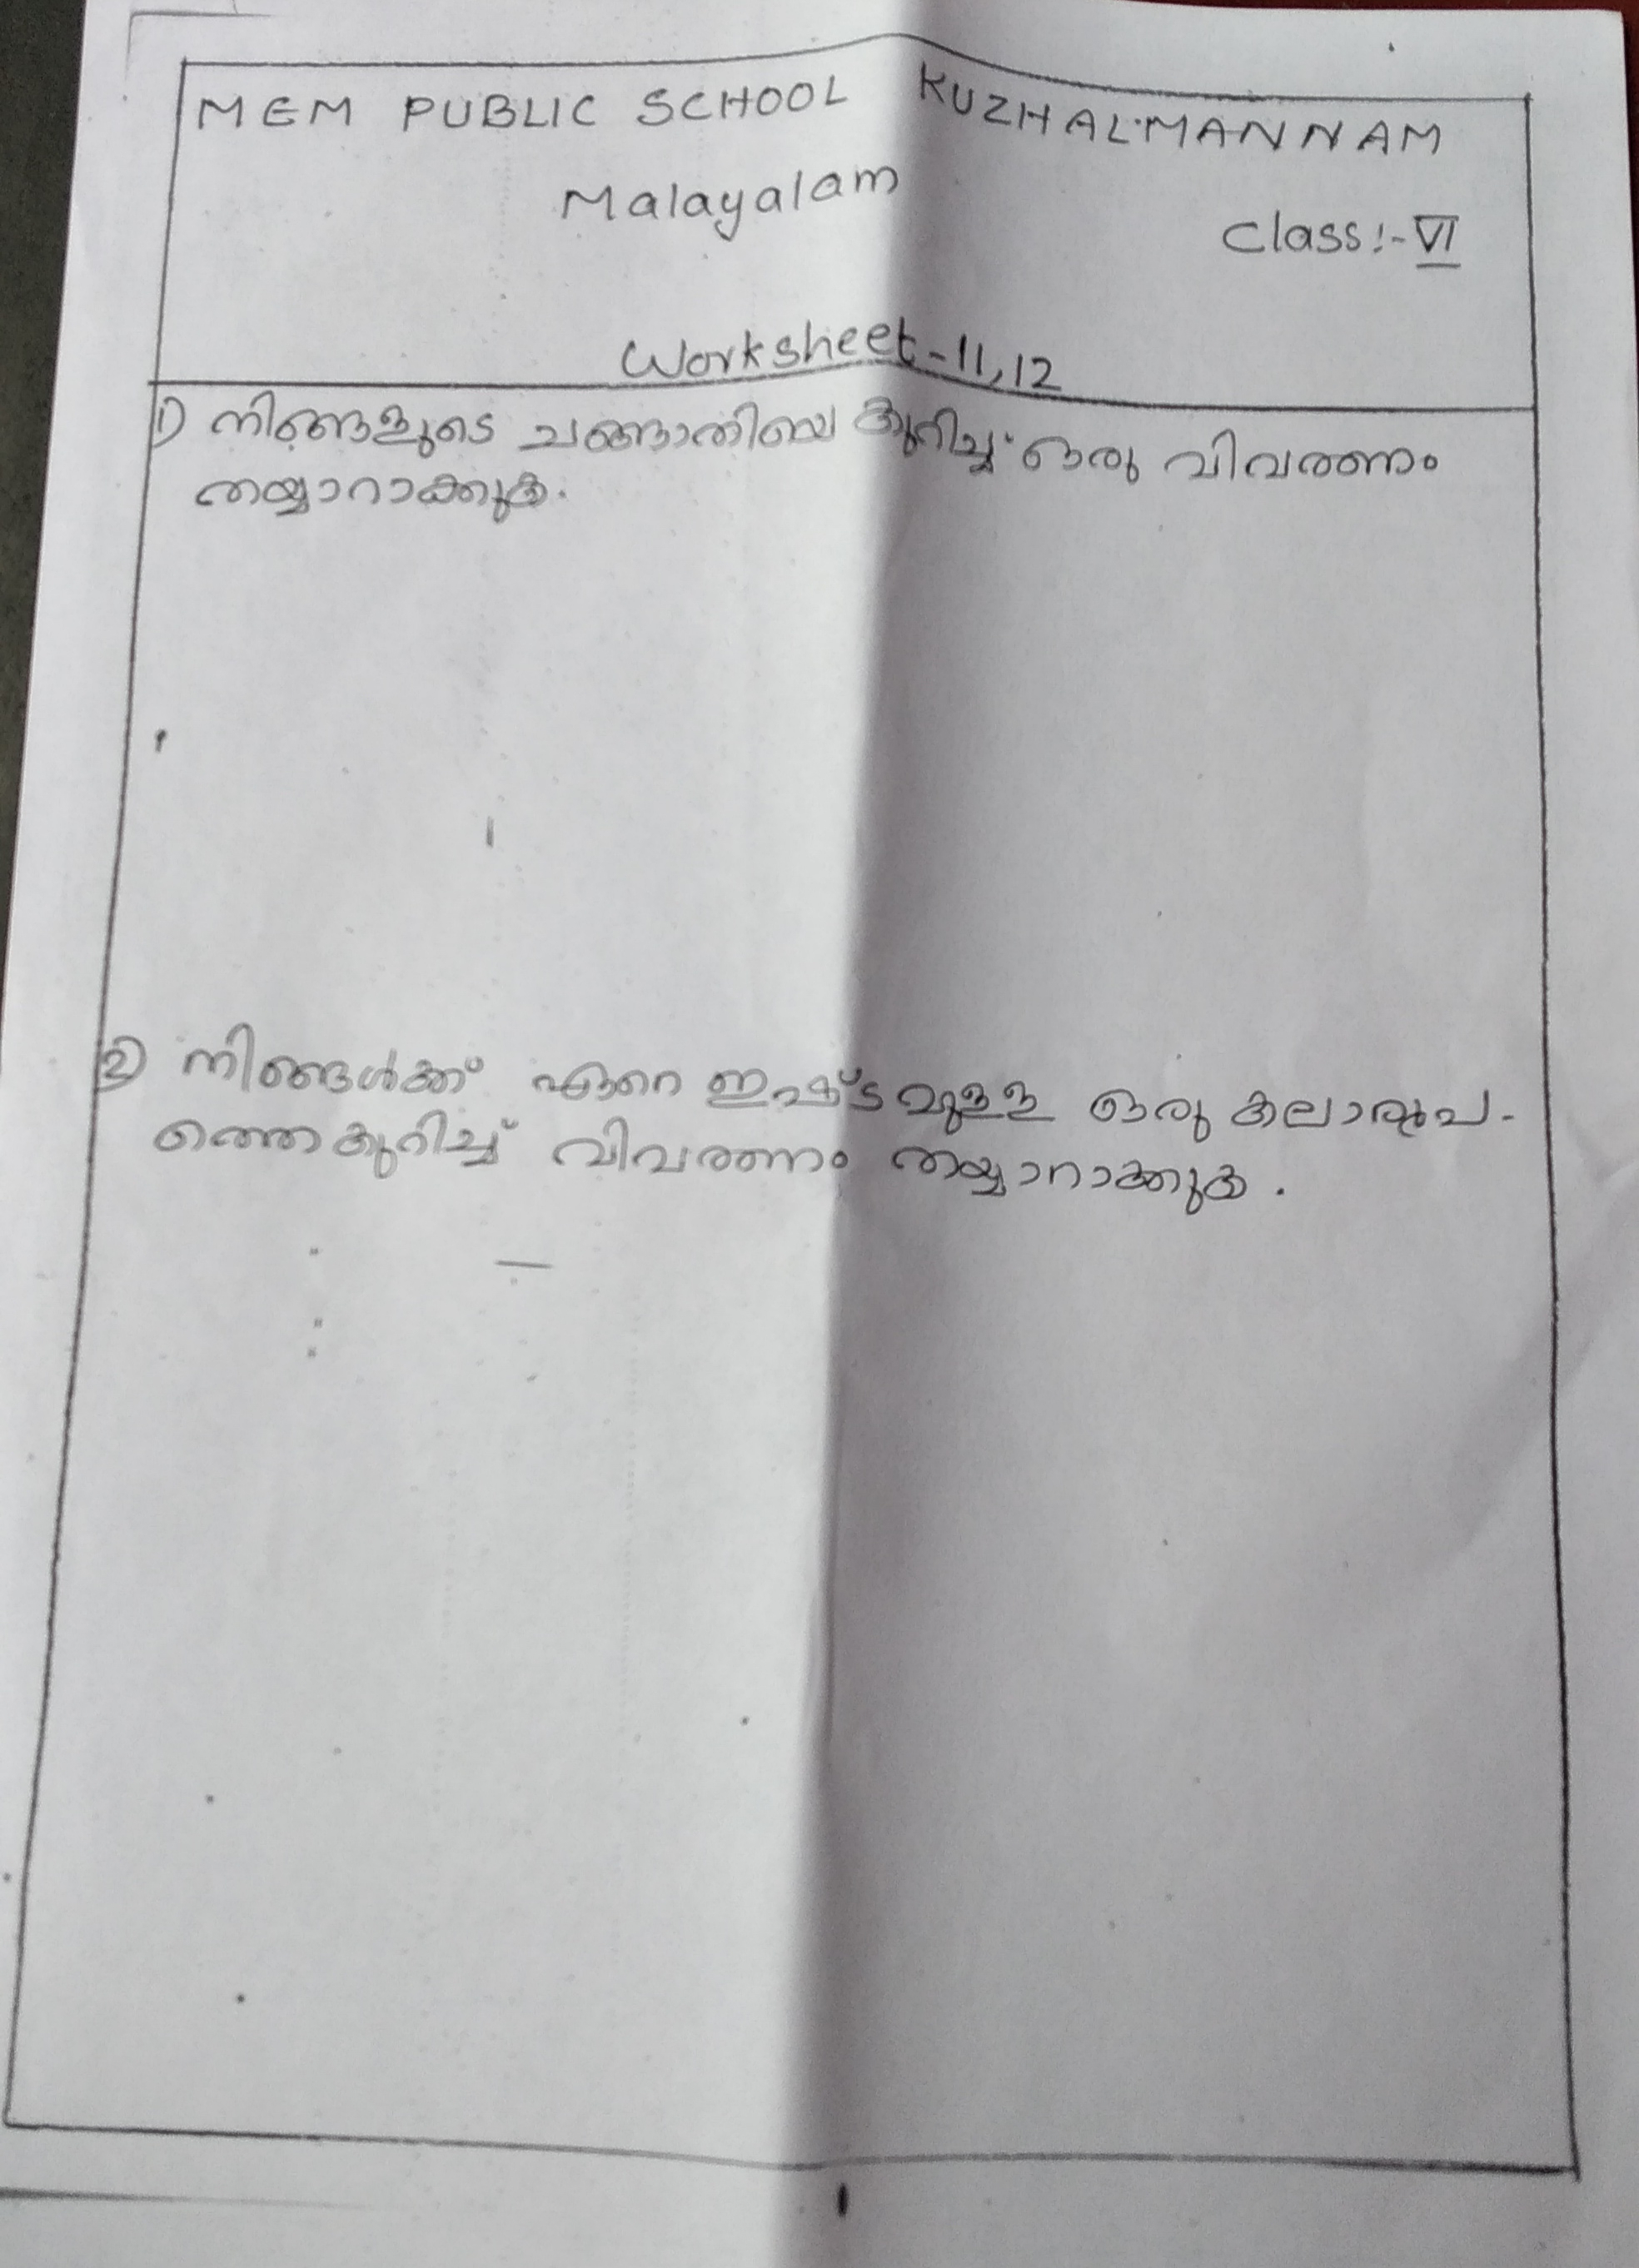 MEM PUBLIC SCHOOL KUZHALMANNAM
Malayalam
Class:- VI
Worksheet-11,12
1) നിങ്ങളുടെ ചങ്ങാതിയെ കുറിച്ച് ഒരു വിവരണം
തയ്യാറാക്കുക.
2) നിങ്ങൾക്ക് ഏറെ ഇഷ്ടമുള്ള ഒരു കലാരൂപ-
ത്തെകുറിച്ച് വിവരണം തയ്യാറാക്കുക.